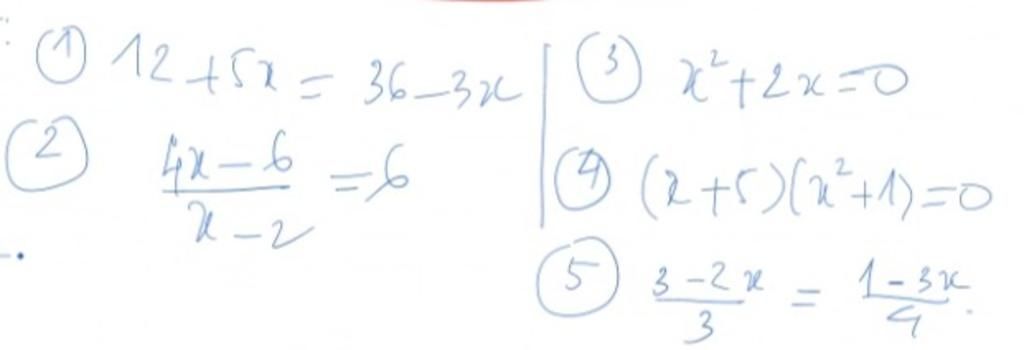 ① 12+5x = 36-3x
② (4x-6)/(x-2) = 6
③ x²+2x=0
④ (x+5)(x²+1)=0
⑤ (3-2x)/3 = (1-3x)/4